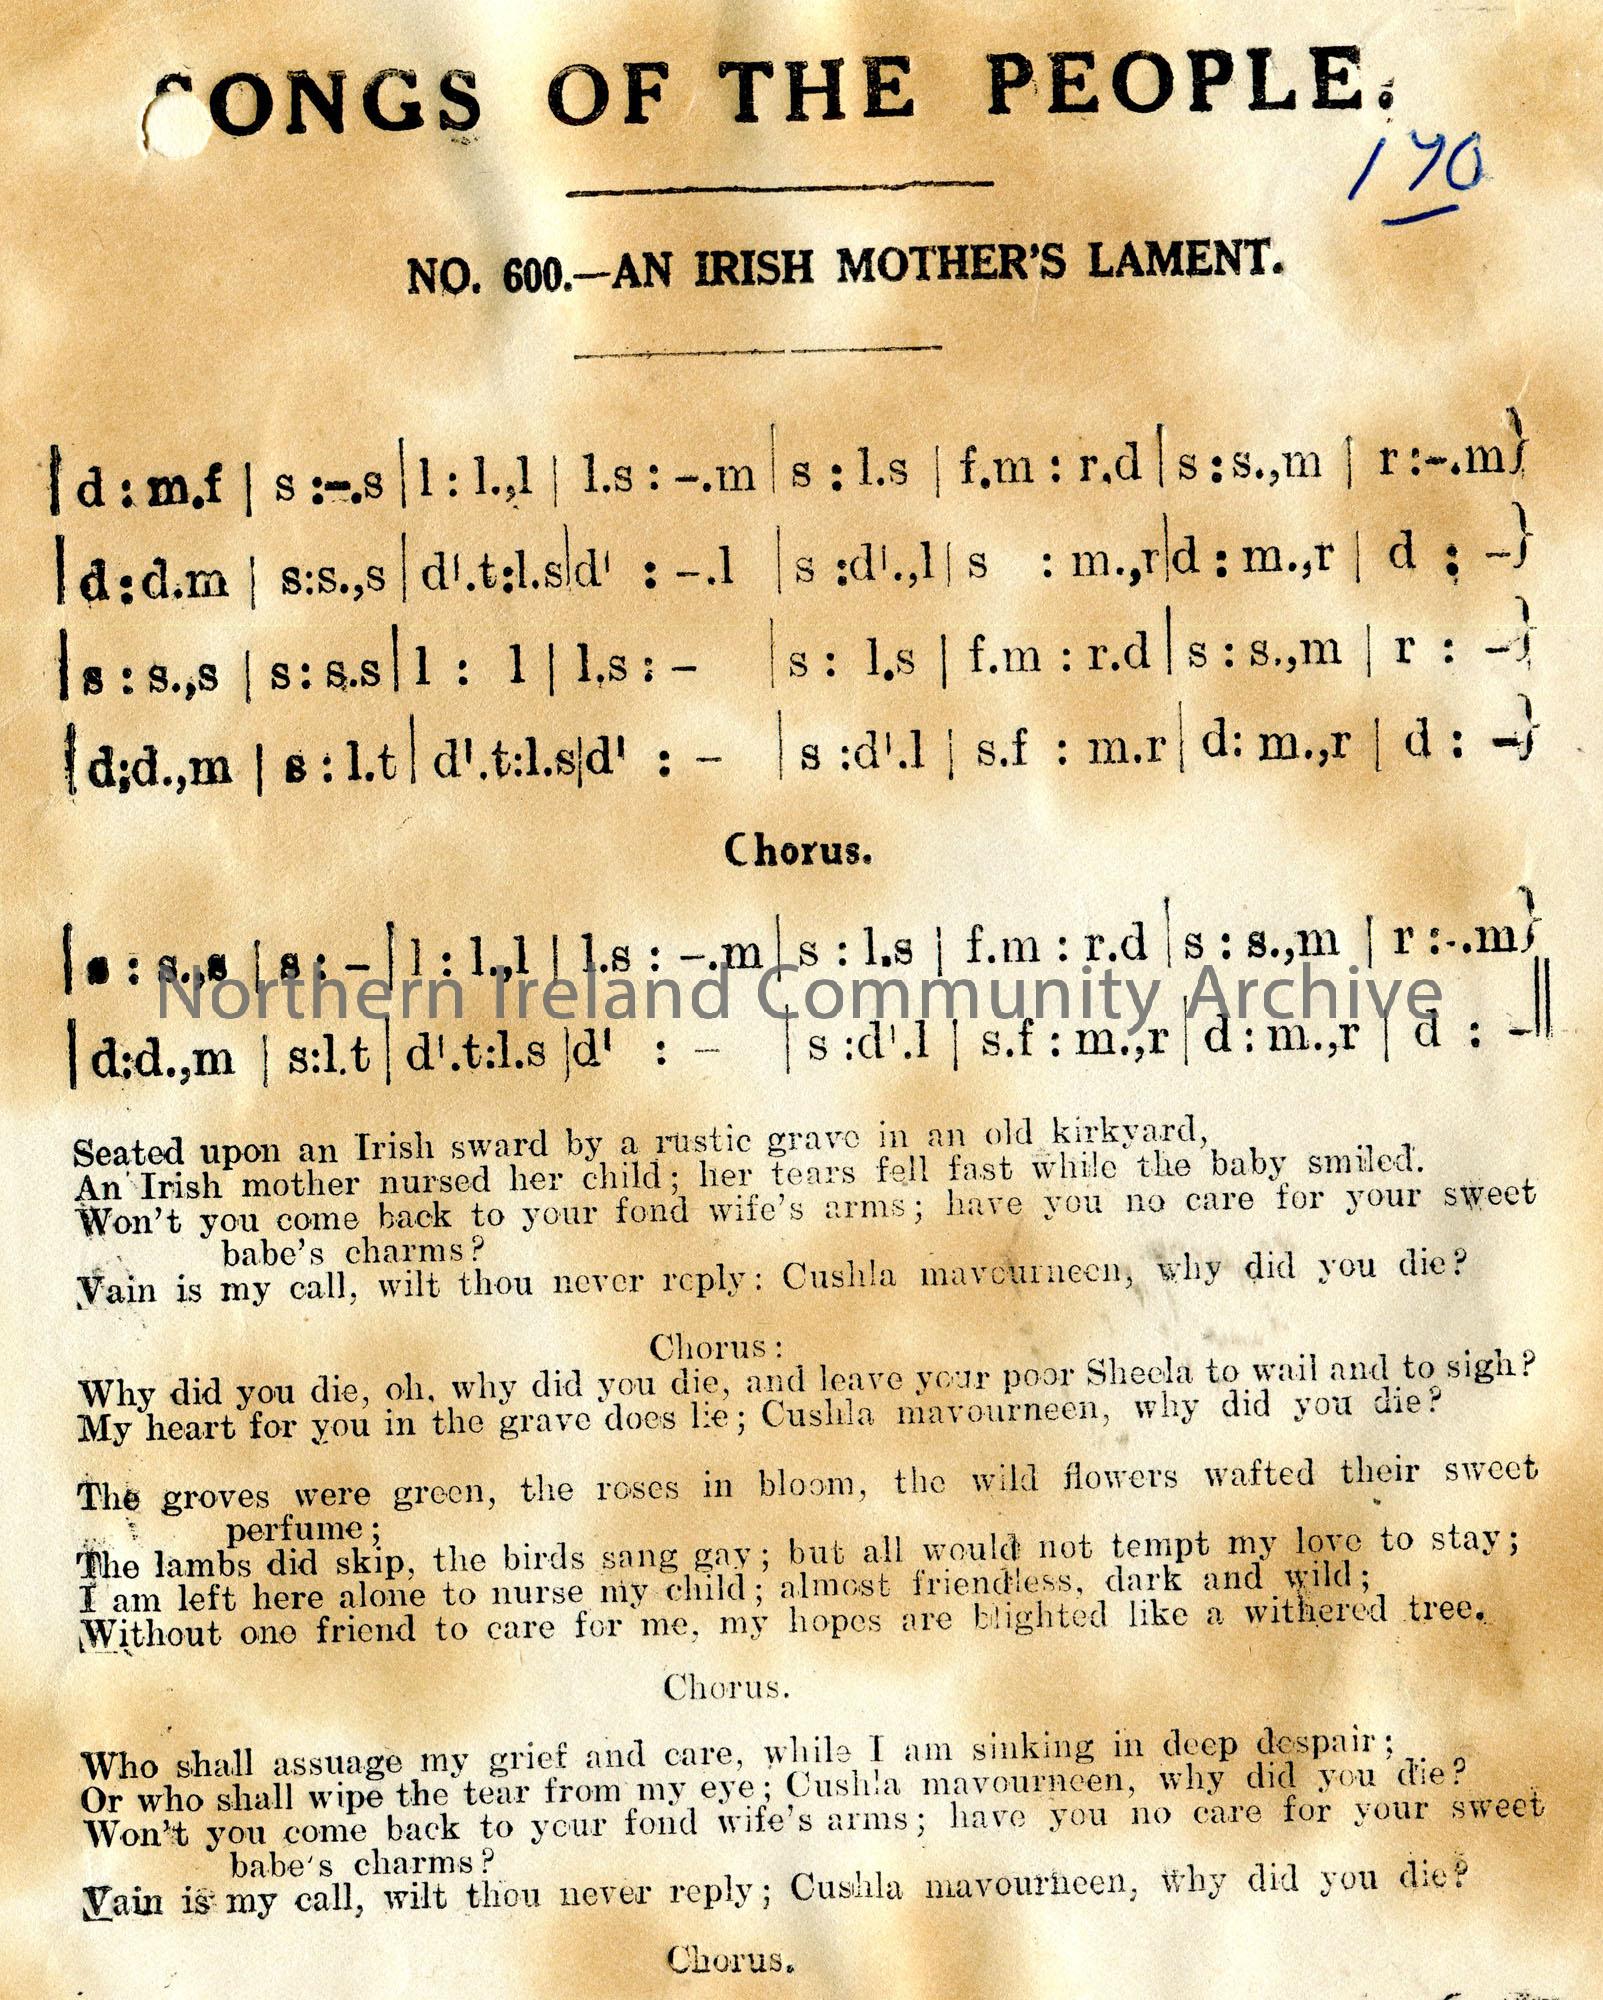 SONGS OF THE PEOPLE.
170
NO. 600.—AN IRISH MOTHER'S LAMENT.
|d : m.f | s :–.s|l : l.,l | l.s : –.m|s : l.s | f.m : r.d|s : s.,m | r :–.m}
|d:d.m | s:s.,s|d'.t:l.s|d' : –.l |s :d'.,l|s : m.,r|d : m.,r | d : –}
|s : s.,s | s: s.s|l : l | l.s : – |s : l.s | f.m : r.d|s : s.,m | r : –}
|d;d.,m | s : l.t|d'.t:l.s|d' : – |s :d'.l | s.f : m.r|d: m.,r | d : –}
Chorus.
|s : s.,s |s : –|l : l.,l | l.s : –.m|s : l.s | f.m : r.d|s : s.,m | r :-.m}
Northern Ireland Community Archive
|d:d.,m | s:l.t|d'.t:l.s |d' : – |s :d'.l | s.f : m.,r|d : m.,r | d : –||
Seated upon an Irish sward by a rustic grave in an old kirkyard,
An Irish mother nursed her child; her tears fell fast while the baby smiled.
Won't you come back to your fond wife's arms; have you no care for your sweet
babe's charms?
Vain is my call, wilt thou never reply: Cushla mavourneen, why did you die?
Chorus:
Why did you die, oh, why did you die, and leave your poor Sheela to wail and to sigh?
My heart for you in the grave does lie; Cushla mavourneen, why did you die?
The groves were green, the roses in bloom, the wild flowers wafted their sweet
perfume;
The lambs did skip, the birds sang gay; but all would not tempt my love to stay;
I am left here alone to nurse my child; almost friendless, dark and wild;
Without one friend to care for me, my hopes are blighted like a withered tree.
Chorus.
Who shall assuage my grief and care, while I am sinking in deep despair;
Or who shall wipe the tear from my eye; Cushla mavourneen, why did you die?
Won't you come back to your fond wife's arms; have you no care for your sweet
babe's charms?
Vain is my call, wilt thou never reply; Cushla mavourneen, why did you die?
Chorus.